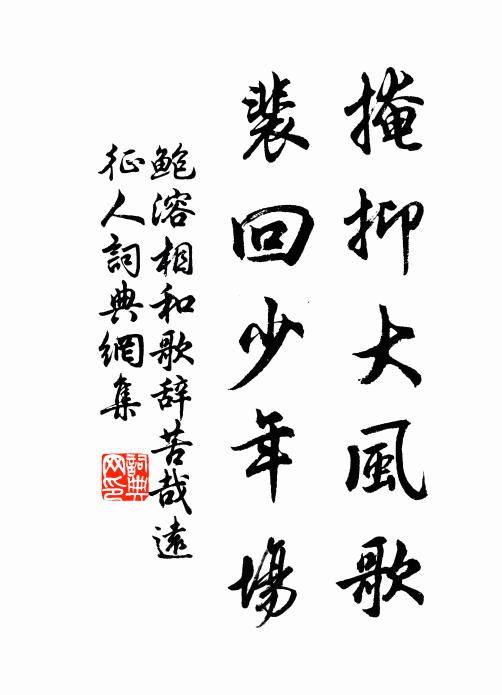 掩抑大風歌
裴回少年場
鮑溶相和歌辞苦哉遠
征人詞典網集
詞典网印